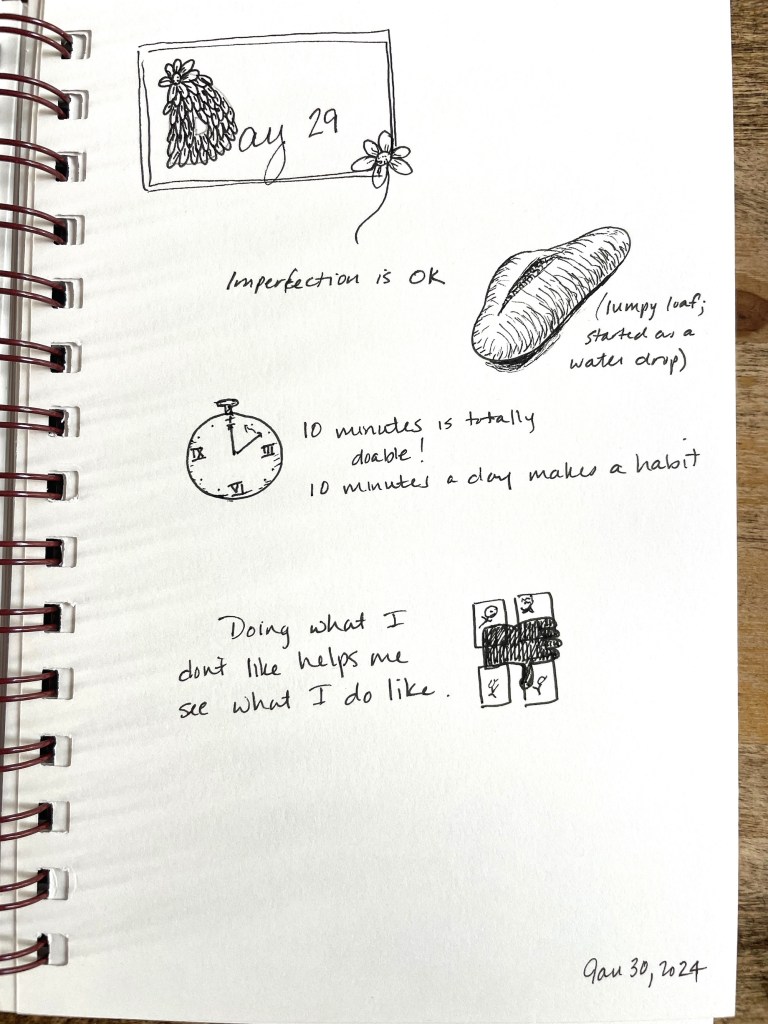 Day 29
Imperfection is OK
(lumpy loaf;
started as a
water drop)
10 minutes is totally
doable!
10 minutes a day makes a habit
IX
III
VI
Doing what I
don't like helps me
see what I do like.
Jan 30, 2024